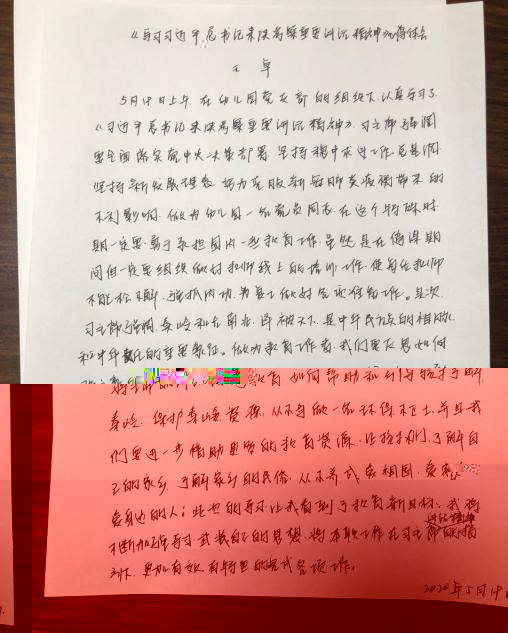 《学习习近平总书记来陕考察重要讲话精神》心得体会
王卓
5月19日上午，在幼儿园党支部的组织下，认真学习了
《习近平总书记来陕考察重要讲话精神》，习主席强调
要全面落实党中央决策部署，坚持稳中求进工作总基调，
坚持新发展理念，努力克服新冠肺炎疫情带来的
不利影响，做为幼儿园一名党员同志，在这个特殊时
期一定要勇于承担园内一些教育工作，虽然是在停课期
间但一定要组织做好教师线上的培训工作，使每位教师
不能松懈，强抓内功，为复工做好各项任务工作。其次，
习主席强调，秦岭和合南北，泽被天下，是中华民族的祖脉
和中华文化的重要象征。做为教育工作者，我们更反思如何
教育，如何帮助和引导孩子了解
秦岭，保护秦岭资源，从小争做一名环保卫士，并且我
们要进一步借助里的教育资源，让孩子们了解自
己的家乡，了解家乡的民俗，从小养成爱祖国，爱家
爱身边的人；此次的学习让我看到了教育新目标，我将
不断加强学习，武装自己的思想，将本职工作在习主席讲话精神的指
引下，更加有效有特色的完成各项工作。
2020年5月19日